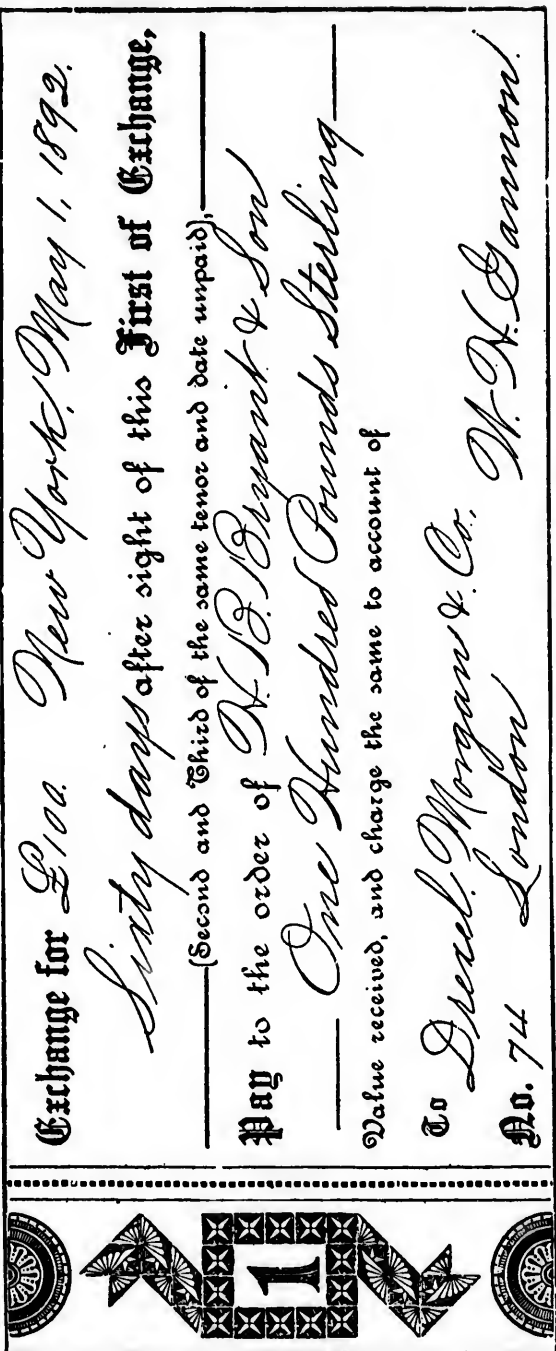 Exchange for £100. New York, May 1, 1892.
Sixty days after sight of this First of Exchange,
(Second and Third of the same tenor and date unpaid),
Pay to the order of H. B. Bryant & Son
One Hundred Pounds Sterling
Value received, and charge the same to account of
To Drexel, Morgan & Co., W. H. Gannon.
No. 74 London
1